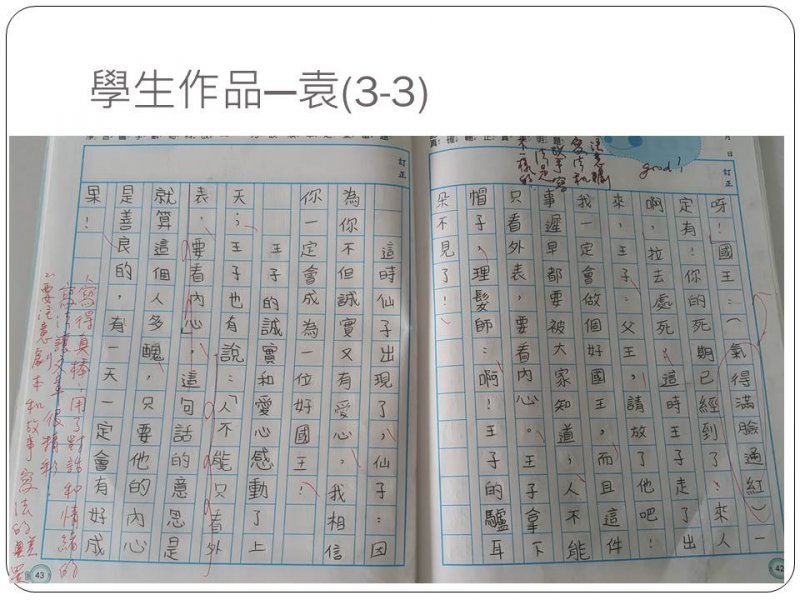 學生作品—袁(3-3)
good!
月 日
訂正
呀!國王:(氣得滿臉通紅)一
定有!你的死期已經到了!來人
啊,拉去處死。這時王子走了出
來,王子:父王,請放了他吧!
我一定會做個好國王,而且這件
事遲早都要被大家知道,人不能
只看外表,要看內心。王子拿下
帽子,理髮師:啊!王子的驢耳
朵不見了!
42
訂正
這時仙子出現了,仙子:因
為你不但誠實又有愛心,我相信
你一定會成為一位好國王!
王子的誠實和愛心感動了上
天;王子也有說:「人不能只看外
表,要看內心」,這句話的意思是
就算這個人多醜,只要他的內心
是善良的,有一天一定會有好成
果!
1.寫得真棒!用了對話和情緒的
讓文章很精彩
2.要注意劇本和故事寫法的
43